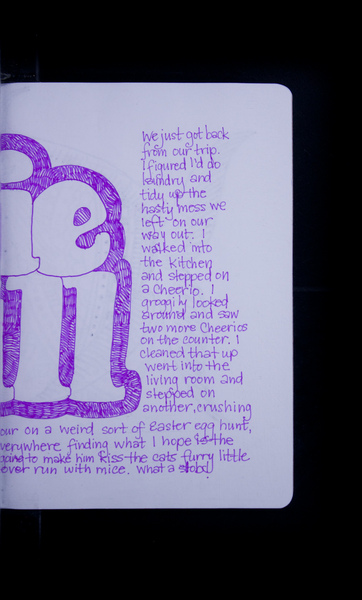 ie
ll
we just got back
from our trip.
I figured I'd do
laundry and
tidy up the
hasty mess we
left on our
way out. I
walked into
the kitchen
and stepped on
a Cheerio. I
groggily looked
around and saw
two more Cheerios
on the counter. I
cleaned that up
went into the
living room and
stepped on
another, crushing
our on a weird sort of Easter egg hunt,
verywhere finding what I hope is the
going to make him kiss the cats furry little
over run with mice. what a slob!